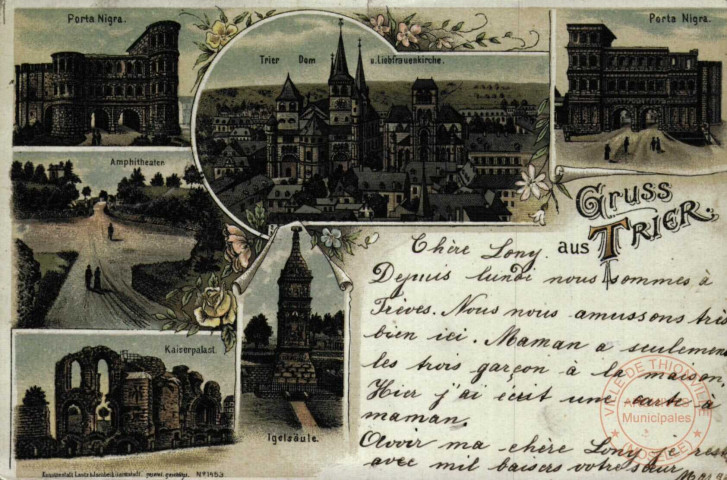 Porta Nigra.
Trier Dom u. Liebfrauenkirche.
Porta Nigra.
Amphitheater
Gruss
aus TRIER.
Kaiserpalast
Igelsäule.
Nº 1453
Chère Lony.
Depuis lundi nous sommes à
Trèves. Nous nous amusons très
bien ici. Maman a seulement
les trois garçon à la maison.
Hier j'ai écit une carte à
maman.
Avoir ma chère Lony je rest
avec mil baisers votre sœur
VILLE DE THIONVILLE
Municipales
(MOSELLE)